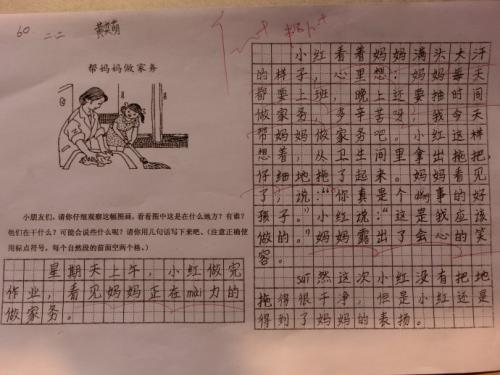 60 二二
帮妈妈做家务
小朋友们，请你仔细观察这幅图画，看看图中这是在什么地方？有谁？
他们在干什么？可能会说些什么呢？请你用几句话写下来吧。（注意正确使
用标点符号，每个自然段的前面空两个格。）
星期天上午，小红做完
作业，看见妈妈正在mài力的
做家务。
小红看着妈妈满头大汗
的样子，心里想：妈妈每天
都要上班，晚上还要抽时间
做家务，多辛苦呀！我今天
帮妈妈做家务吧。小红这样
想着，从卫生间里拿出拖把，
仔细地拖了起来。妈妈看见
了，说：“你真是个dǒng事的好
孩子。”小红说：“这是我应该
做的。”妈妈露出了会心的笑
容。
suī然这次小红没有把地
拖得很干净，但是小红还是
得到了妈妈的表扬。